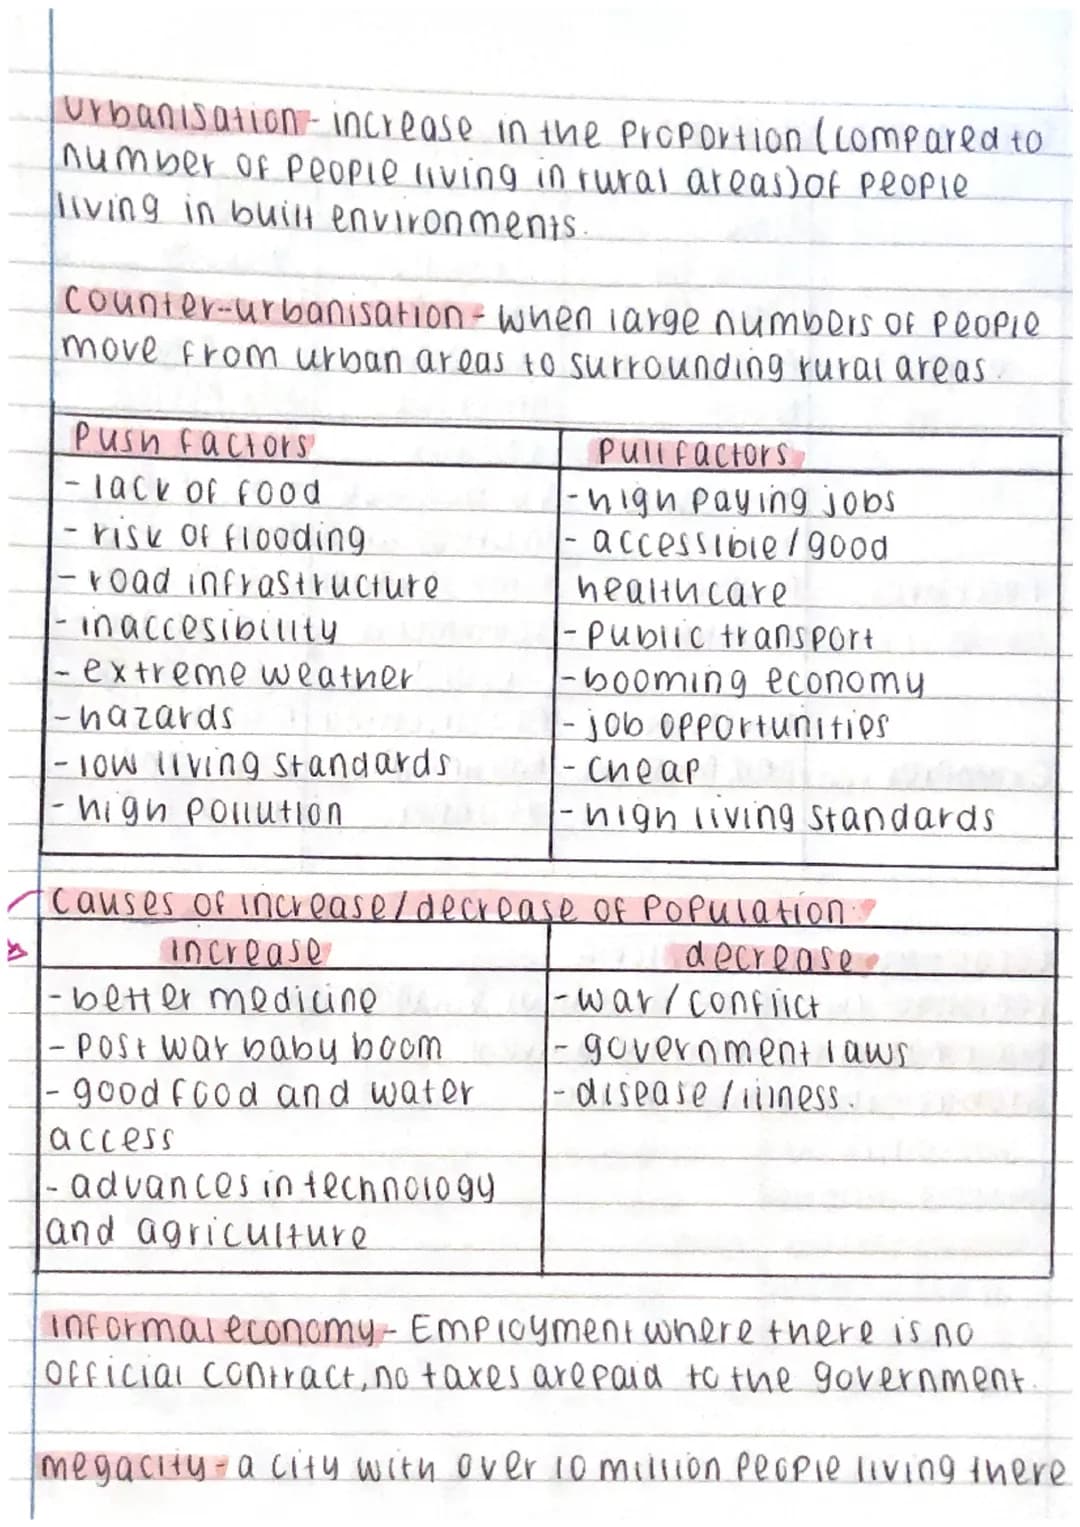 urbanisation - increase in the proportion (compared to
number of people living in rural areas) of people
living in built environments.
counter-urbanisation - when large numbers of people
move from urban areas to surrounding rural areas.
Push factors
- lack of food
- risk of flooding
- road infrastructure
- inaccesibility
- extreme weather
- hazards
- low living standards
- high pollution
Pull factors
- high paying jobs
- accessible / good
healthcare
- public transport
- booming economy
- job opportunities
- cheap
- high living standards
causes of increase / decrease of population.
increase
- better medicine
- post war baby boom
- good food and water
access
- advances in technology
and agriculture
decrease
- war / conflict
- government laws
- disease / illness.
informal economy - Employment where there is no
official contract, no taxes are paid to the government.
megacity - a city with over 10 million people living there